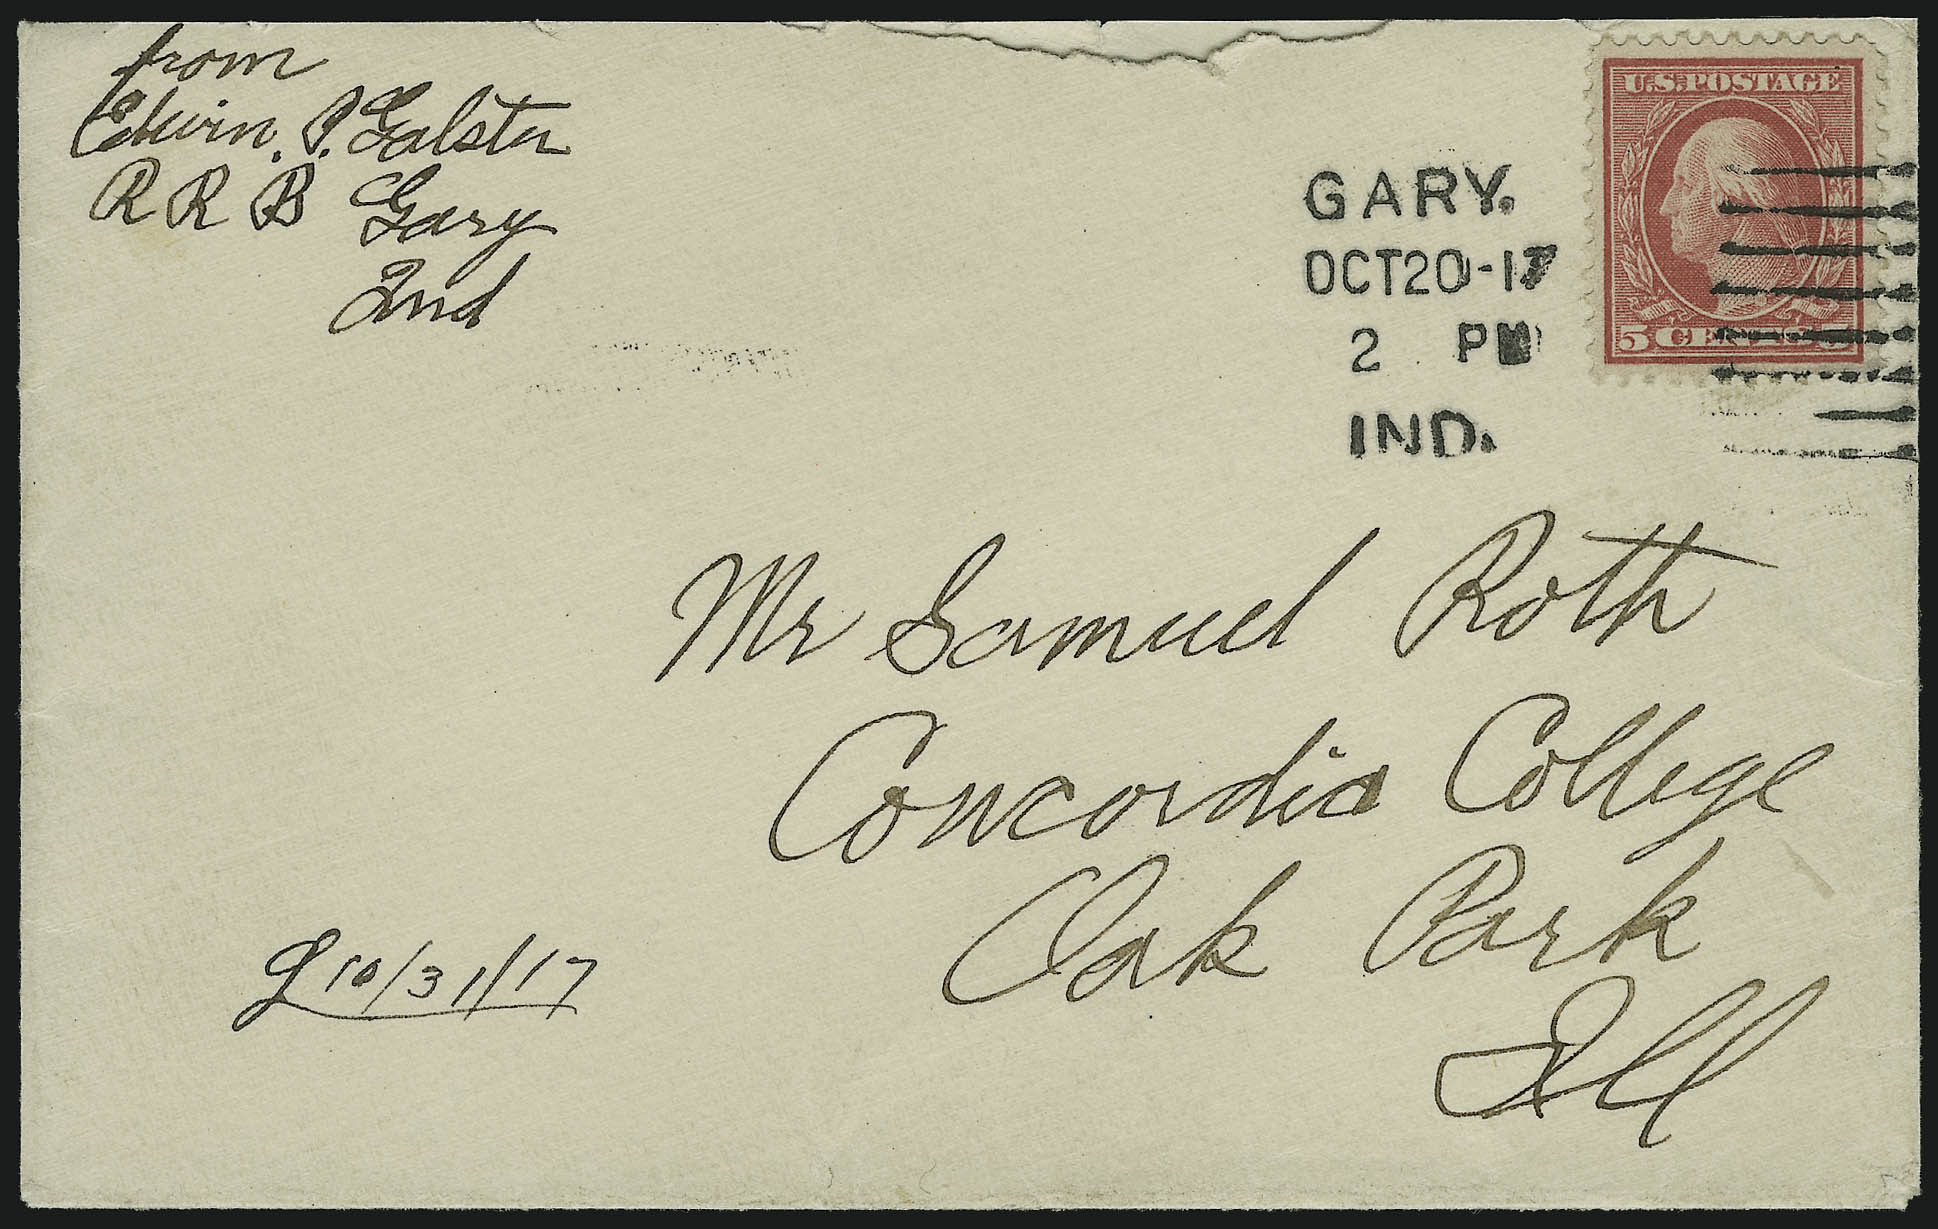 from
Edwin. P. Galster
R R B Gary
Ind
U.S. POSTAGE
5 CENTS 5
GARY.
OCT 20-17
2 PM
IND.
Mr Samuel Roth
Concordia College
Oak Park
Ill
10/31/17